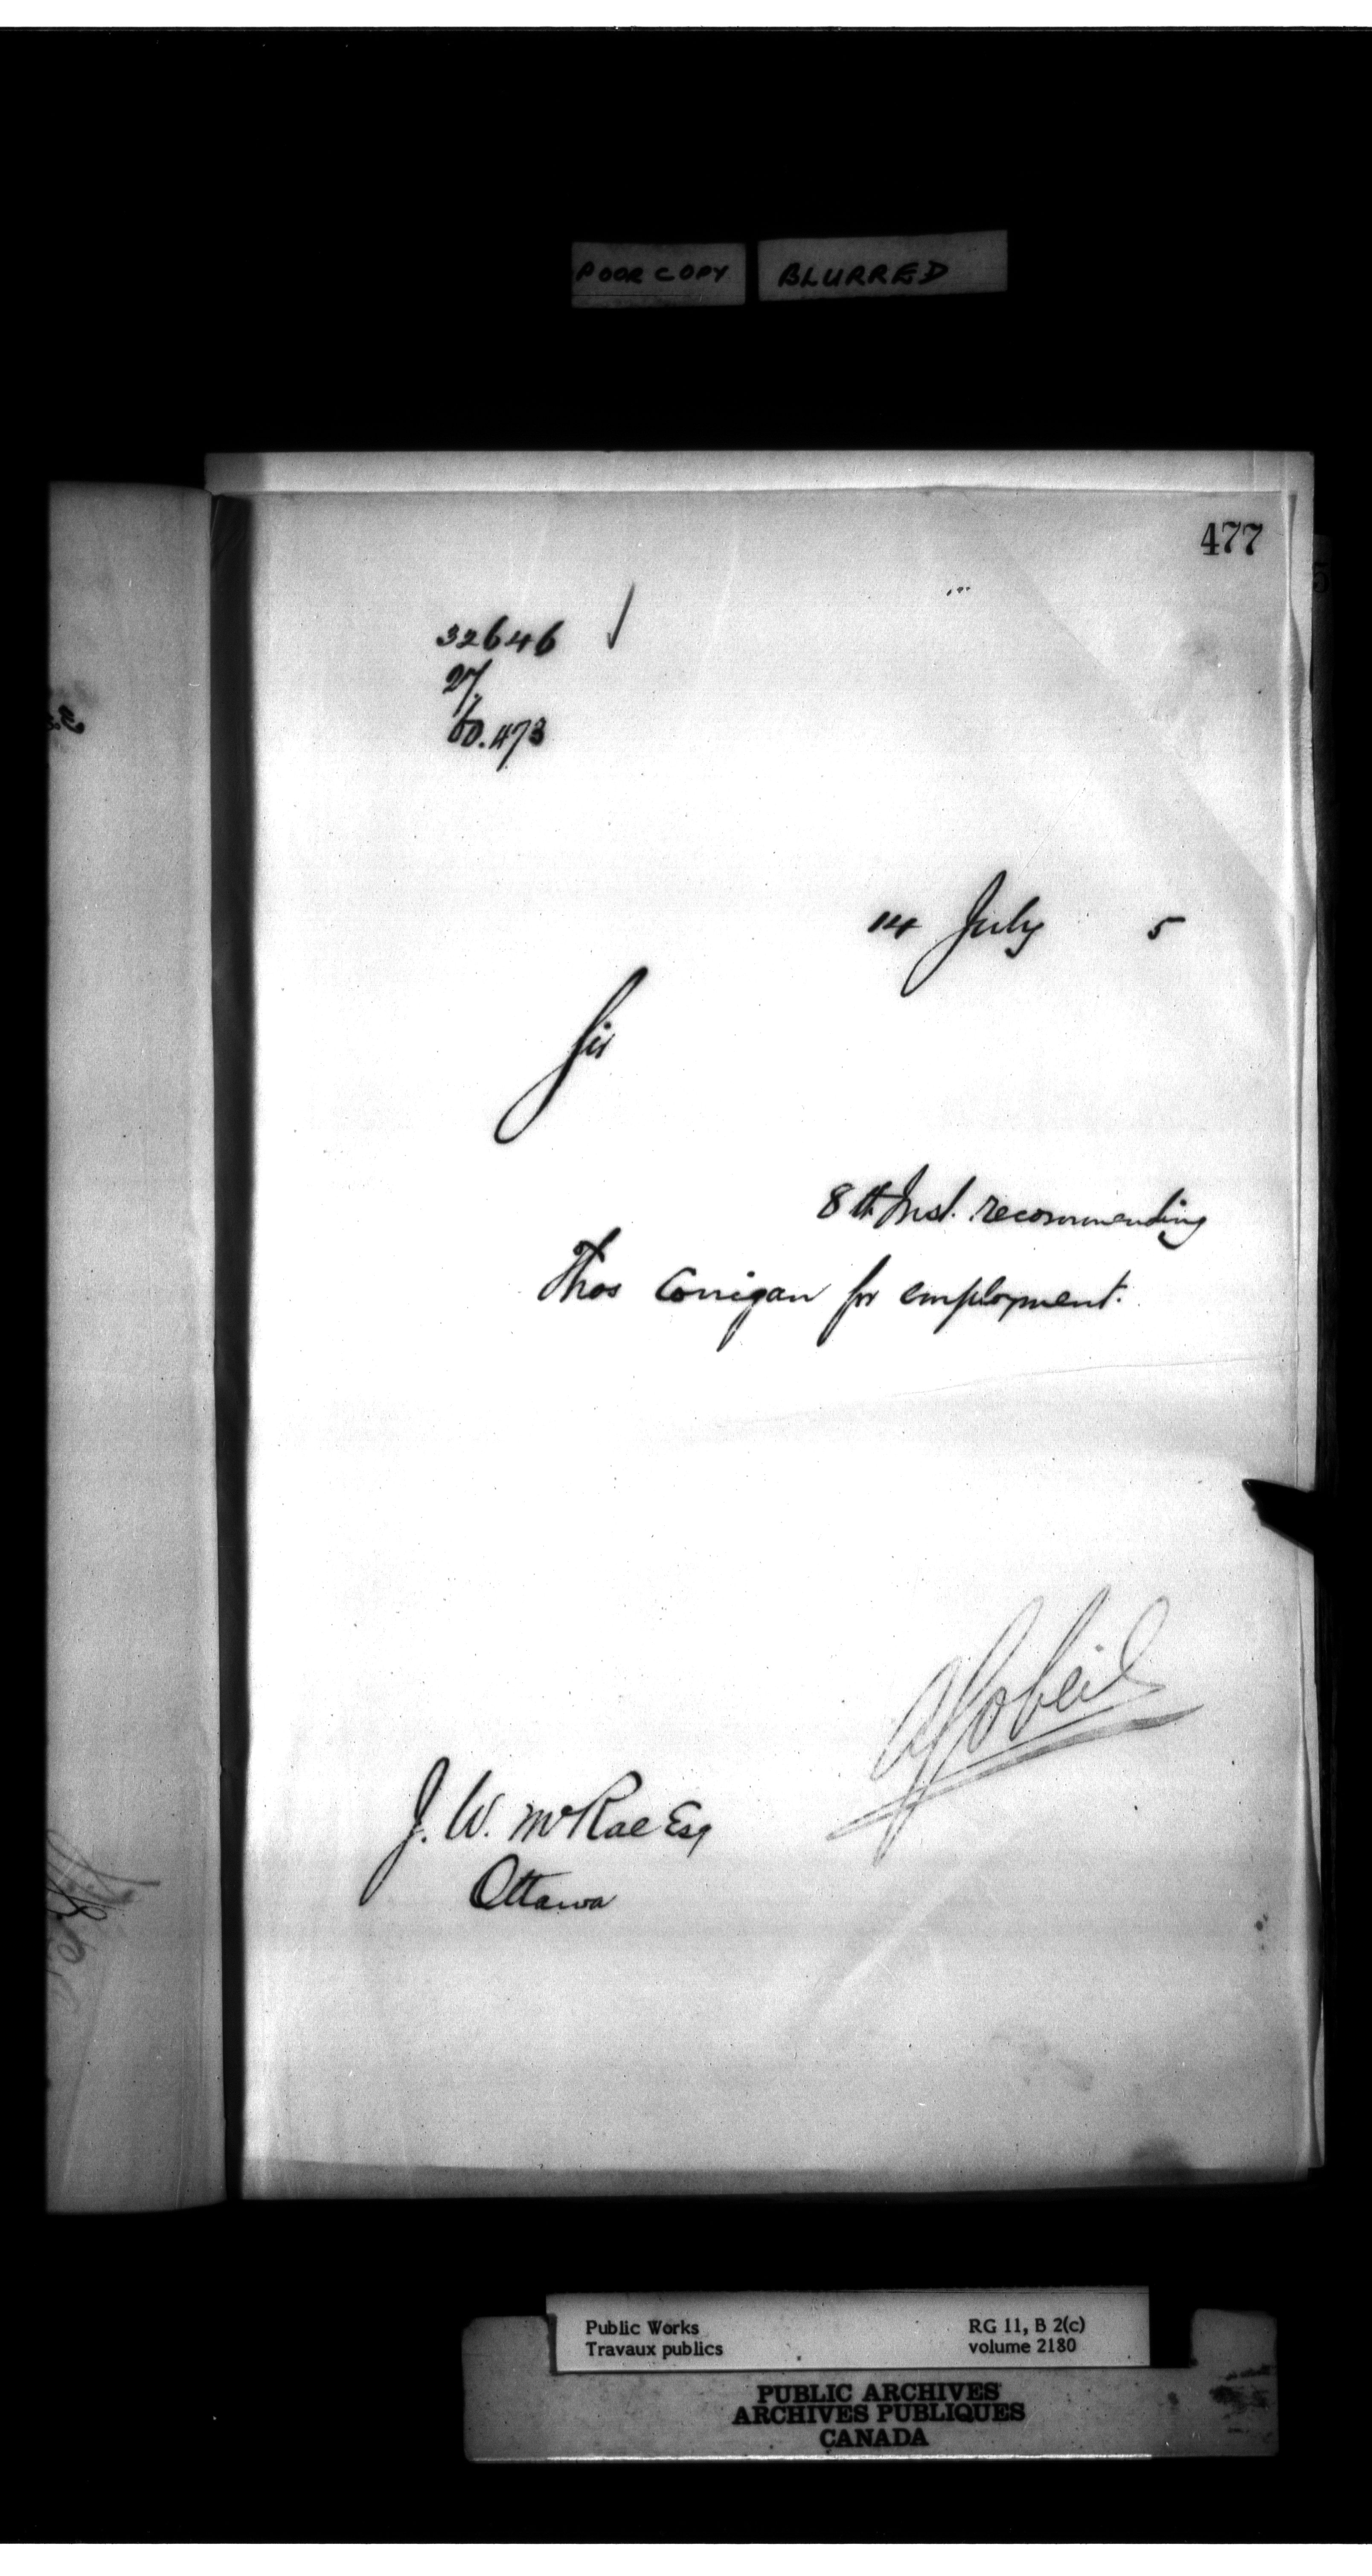 POOR COPY BLURRED
477
32646
27.
60.473
14 July 5
Sir
8th Inst. recommending
Thos Corrigan for employment.
AGobeil
J. W. McRae Esq
Ottawa
Public Works RG 11, B 2(c)
Travaux publics volume 2180
PUBLIC ARCHIVES
ARCHIVES PUBLIQUES
CANADA